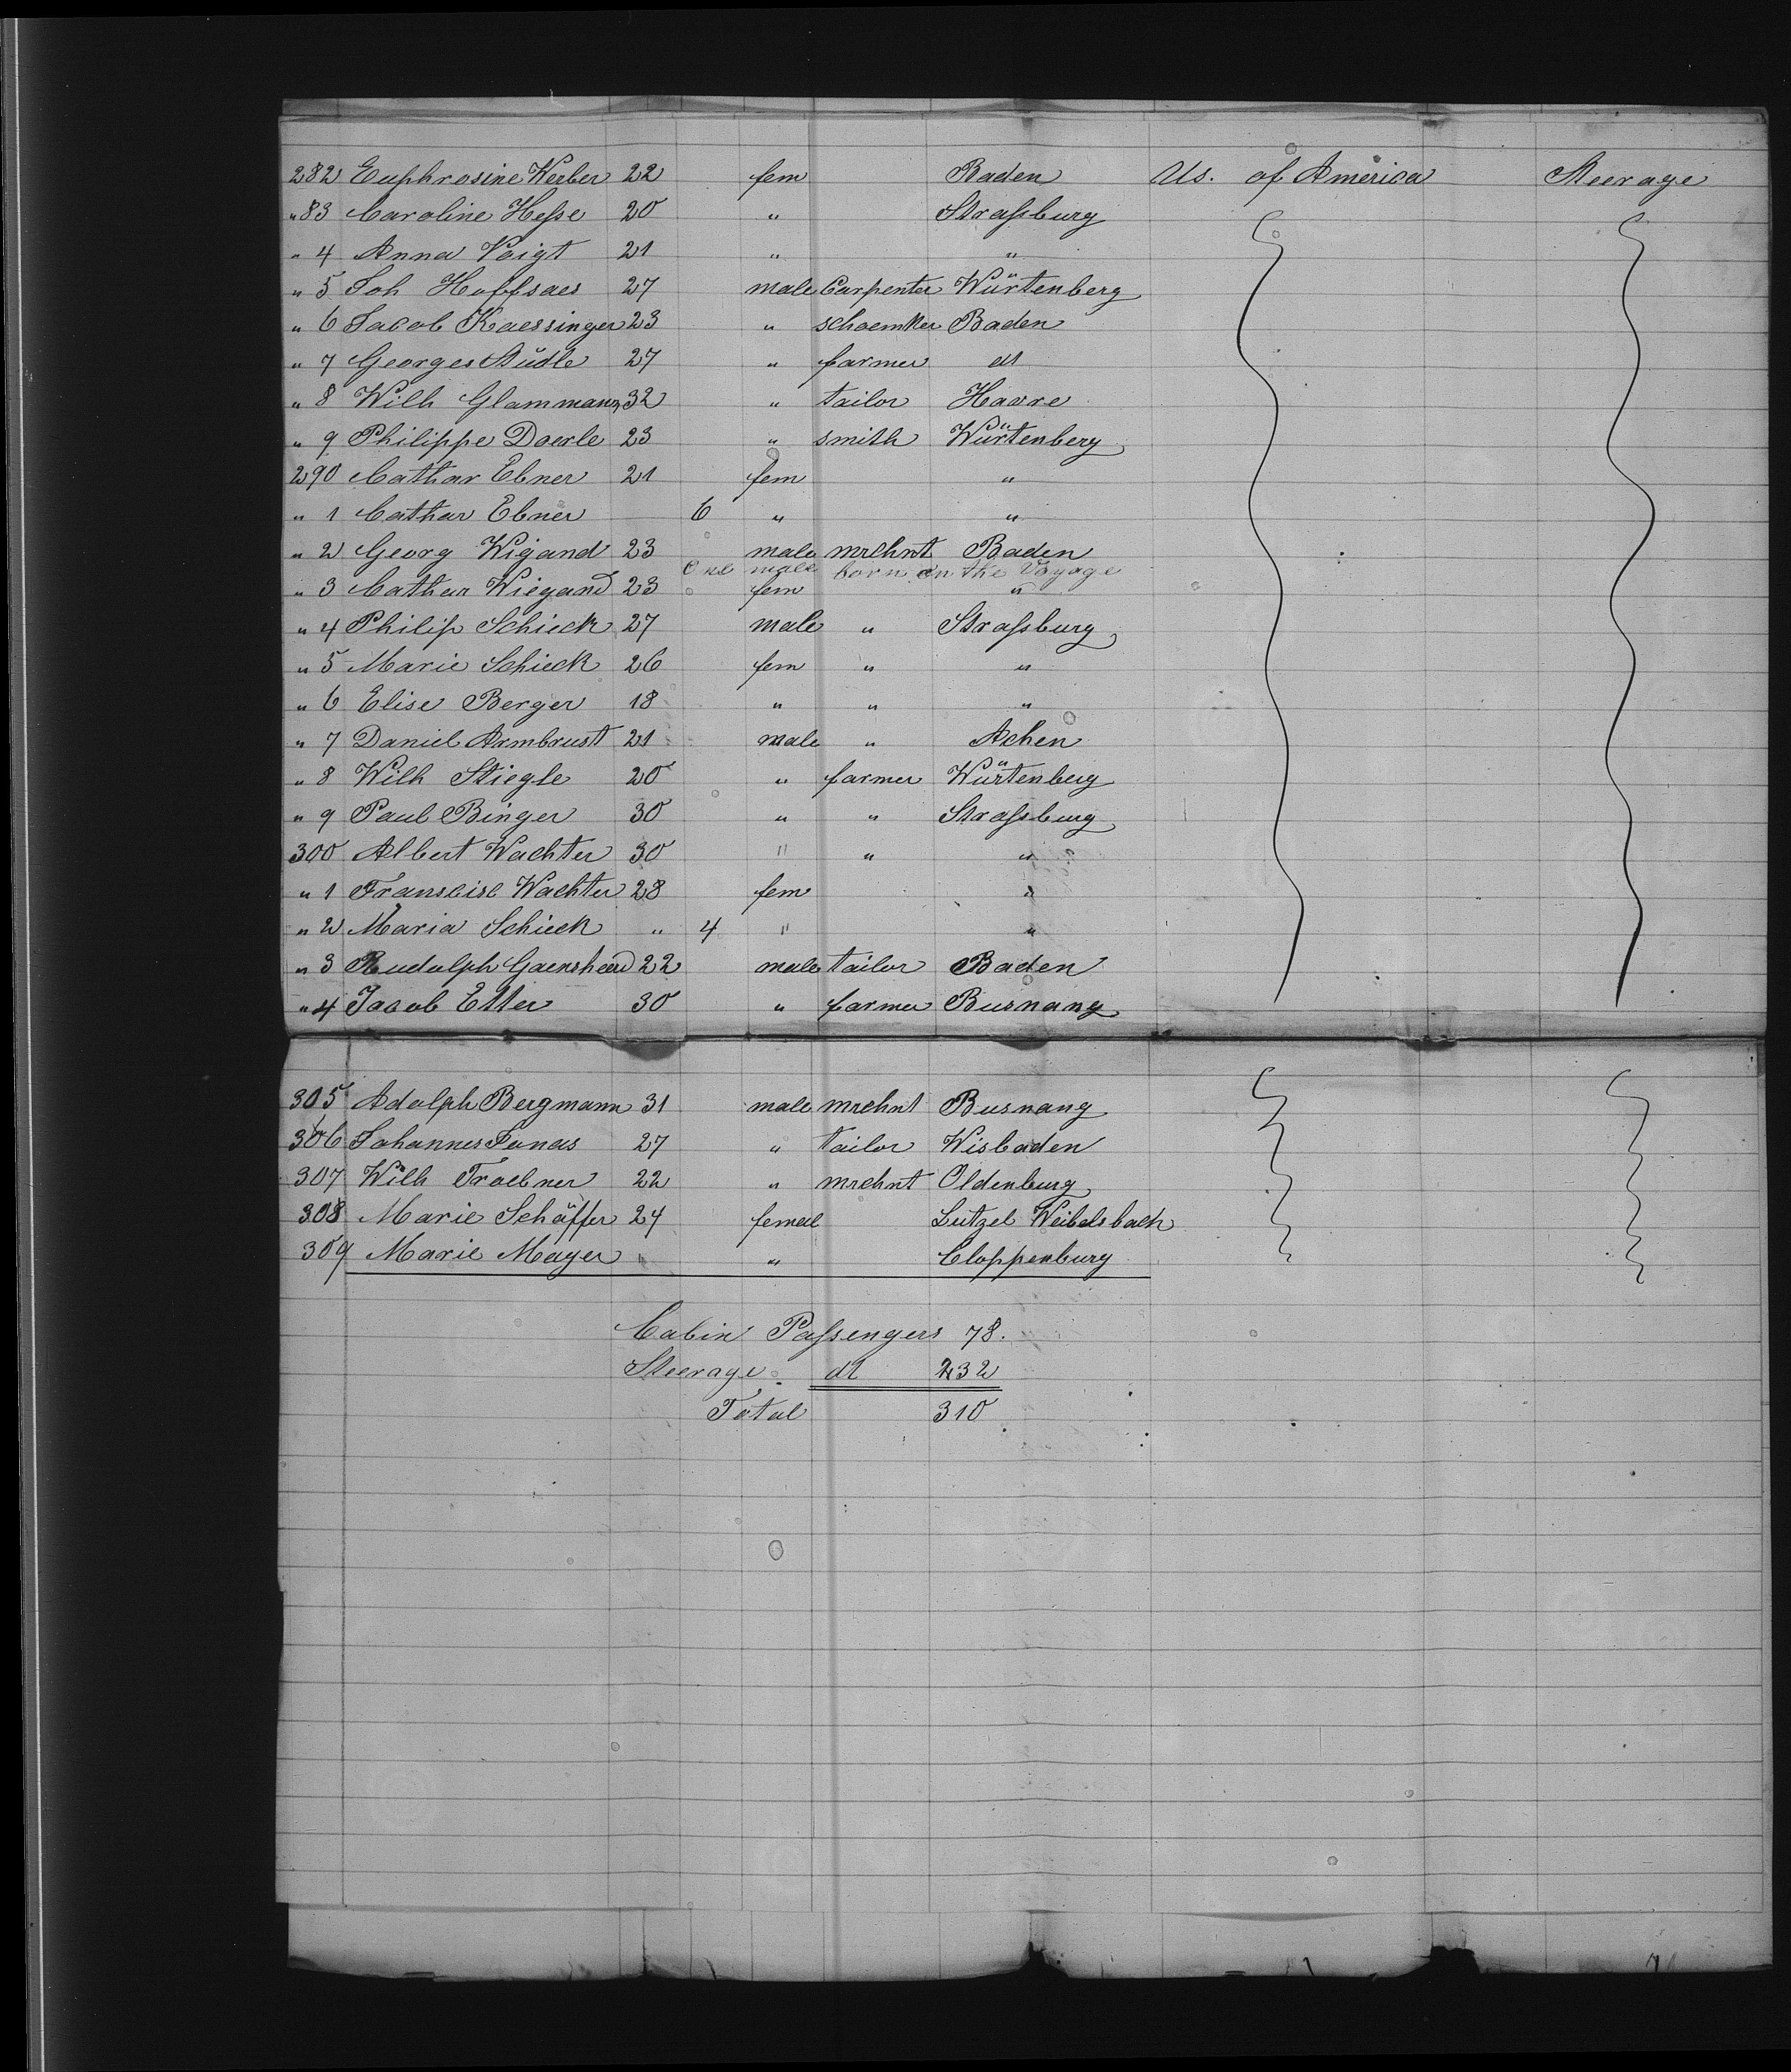 282 Euphrosine Werber 22 fem Baden Us. of America Steerage
"83 Caroline Hesse 20 " Strassburg
" 4 Anna Voigt 21 " "
" 5 Joh Hoffsaes 27 male Carpenter Würtenberg
" 6 Jacob Kaessinger 23 " schoemker Baden
" 7 Georges Stüdle 27 " farmer dt
" 8 Wilh Glammann 32 " tailor Havre
" 9 Philippe Doerle 23 " smith Würtenberg
290 Cathar Ebner 21 fem "
" 1 Cathar Ebner 6 " "
" 2 Georg Wigand 23 male mrchnt Baden
One male born on the Voyage
" 3 Cathar Wiegand 23 fem "
" 4 Philip Schieck 27 male " Strassburg
" 5 Marie Schieck 26 fem " "
" 6 Elise Berger 18 " " "
" 7 Daniel Armbrust 21 male " Achen
" 8 Wilh Stiegle 20 " farmer Würtenberg
" 9 Paul Binger 30 " " Strassburg
300 Albert Wachter 30 " " "
" 1 Franscisc Wachter 28 fem "
" 2 Maria Schieck " 4 " "
" 3 Rudolph 22 male tailor Baden
" 4 Jacob Etter 30 " farmer Busnang
305 Adolph Bergmann 31 male mrchnt Busnang
306 Johannes Jonas 27 " tailor Wisbaden
307 Wilh Troebner 22 " mrchnt Oldenburg
308 Marie Schäffer 24 femal Lutzel Weibelsbach
309 Marie Mayer " " Cloppenburg
Cabin Passengers 78.
Steerage dt 232
Total 310